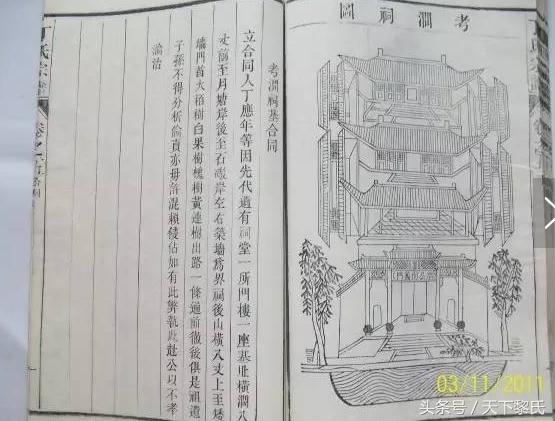 考澗祠圖
考澗祠基合同
立合同人丁應年等因先代遺有祠堂一所門樓一座基址橫濶八
丈前至月塘岸後至石磡岸左右築墻為界祠後山橫八丈上至矮
墻門首大栢樹白果樹槐樹黃連樹出路一條通前徹後俱是祖遺
子孫不得分析偷賣亦毋許混賴侵佔如有此弊執此赴公以不孝
論治
丁氏宗
卷之
03/11/2011
头条号／天下黎氏